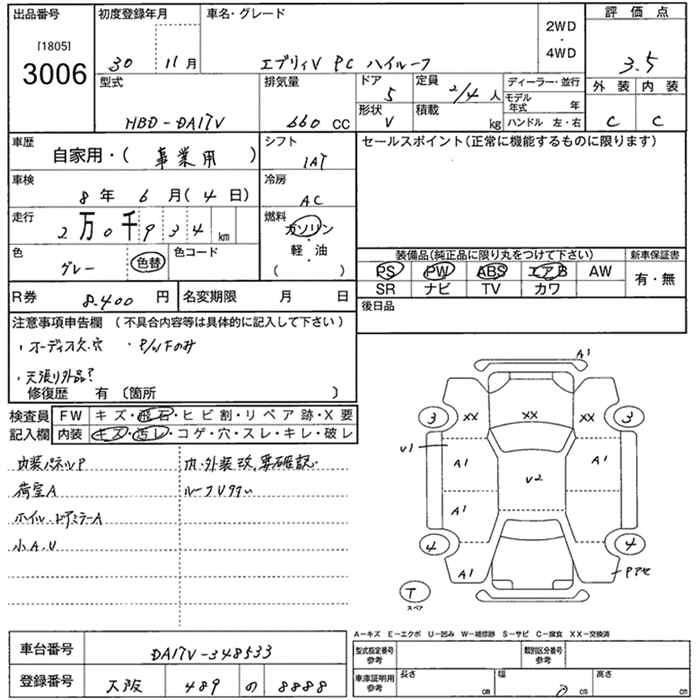 出品番号 初度登録年月 車名・グレード 2WD・4WD 評価点
[1805]
3006
30 11月 エブリィV PC ハイルーフ
3.5
型式 排気量 ドア 5 定員 2/4 人 ディーラー・並行
モデル年式 年
外装 内装
HBD-DA17V 660 CC 形状 V 積載 kg ハンドル 左・右 C C
車歴 自家用・( 事業用 ) シフト 1AT セールスポイント(正常に機能するものに限ります)
車検 8年 6月( 4日) 冷房 AC
走行 2万0千934 km 燃料 ガソリン・軽・油
( )
色 グレー 色替 色コード
装備品(純正品に限り丸をつけて下さい) 新車保証書
PS PW ABS エアB AW 有・無
SR ナビ TV カワ
R券 8.400 円 名変期限 月 日 後日品
注意事項申告欄 (不具合内容等は具体的に記入して下さい)
・オーディオ欠.穴 ・P/WFのみ
・天張り外品?
修復歴 有 〔箇所 〕
検査員 FW キズ・飛石・ヒビ割・リペア跡・X要
記入欄 内装 キズ・汚レ・コゲ・穴・スレ・キレ・破レ
内装パネルP 内.外装改.要確認.
荷室A ルーフVワレい
ホイル.ドアミラーA
小A.U
A1
3 XX XX 3
U1 A1 A1
V2
A1
4 4
A1 Pアセ
T
スペア
A-キズ E-エクボ U-凹み W-補修跡 S-サビ C-腐食 XX-交換済
車台番号 DA17V-348533
型式指定番号 参考 類別区分番号 参考
登録番号 大阪 489 の 8888
車庫証明用 参考 長さ cm 幅 cm 高さ cm